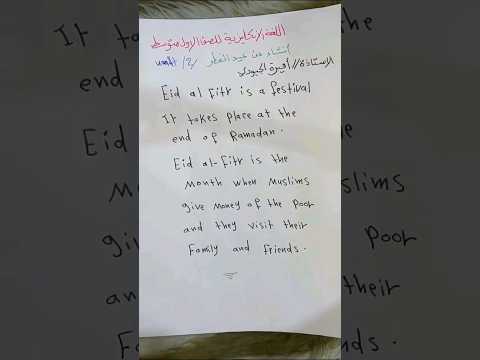 اللغة الإنكليزية للصف الأول متوسط
أنشاء عن عيد الفطر / unit 2
الاستاذة // أميرة
Eid al fitr is a festival
It takes place at the
end of Ramadan.
Eid al-fitr is the
month when Muslims
give money of the poor
and they visit their
Family and friends.